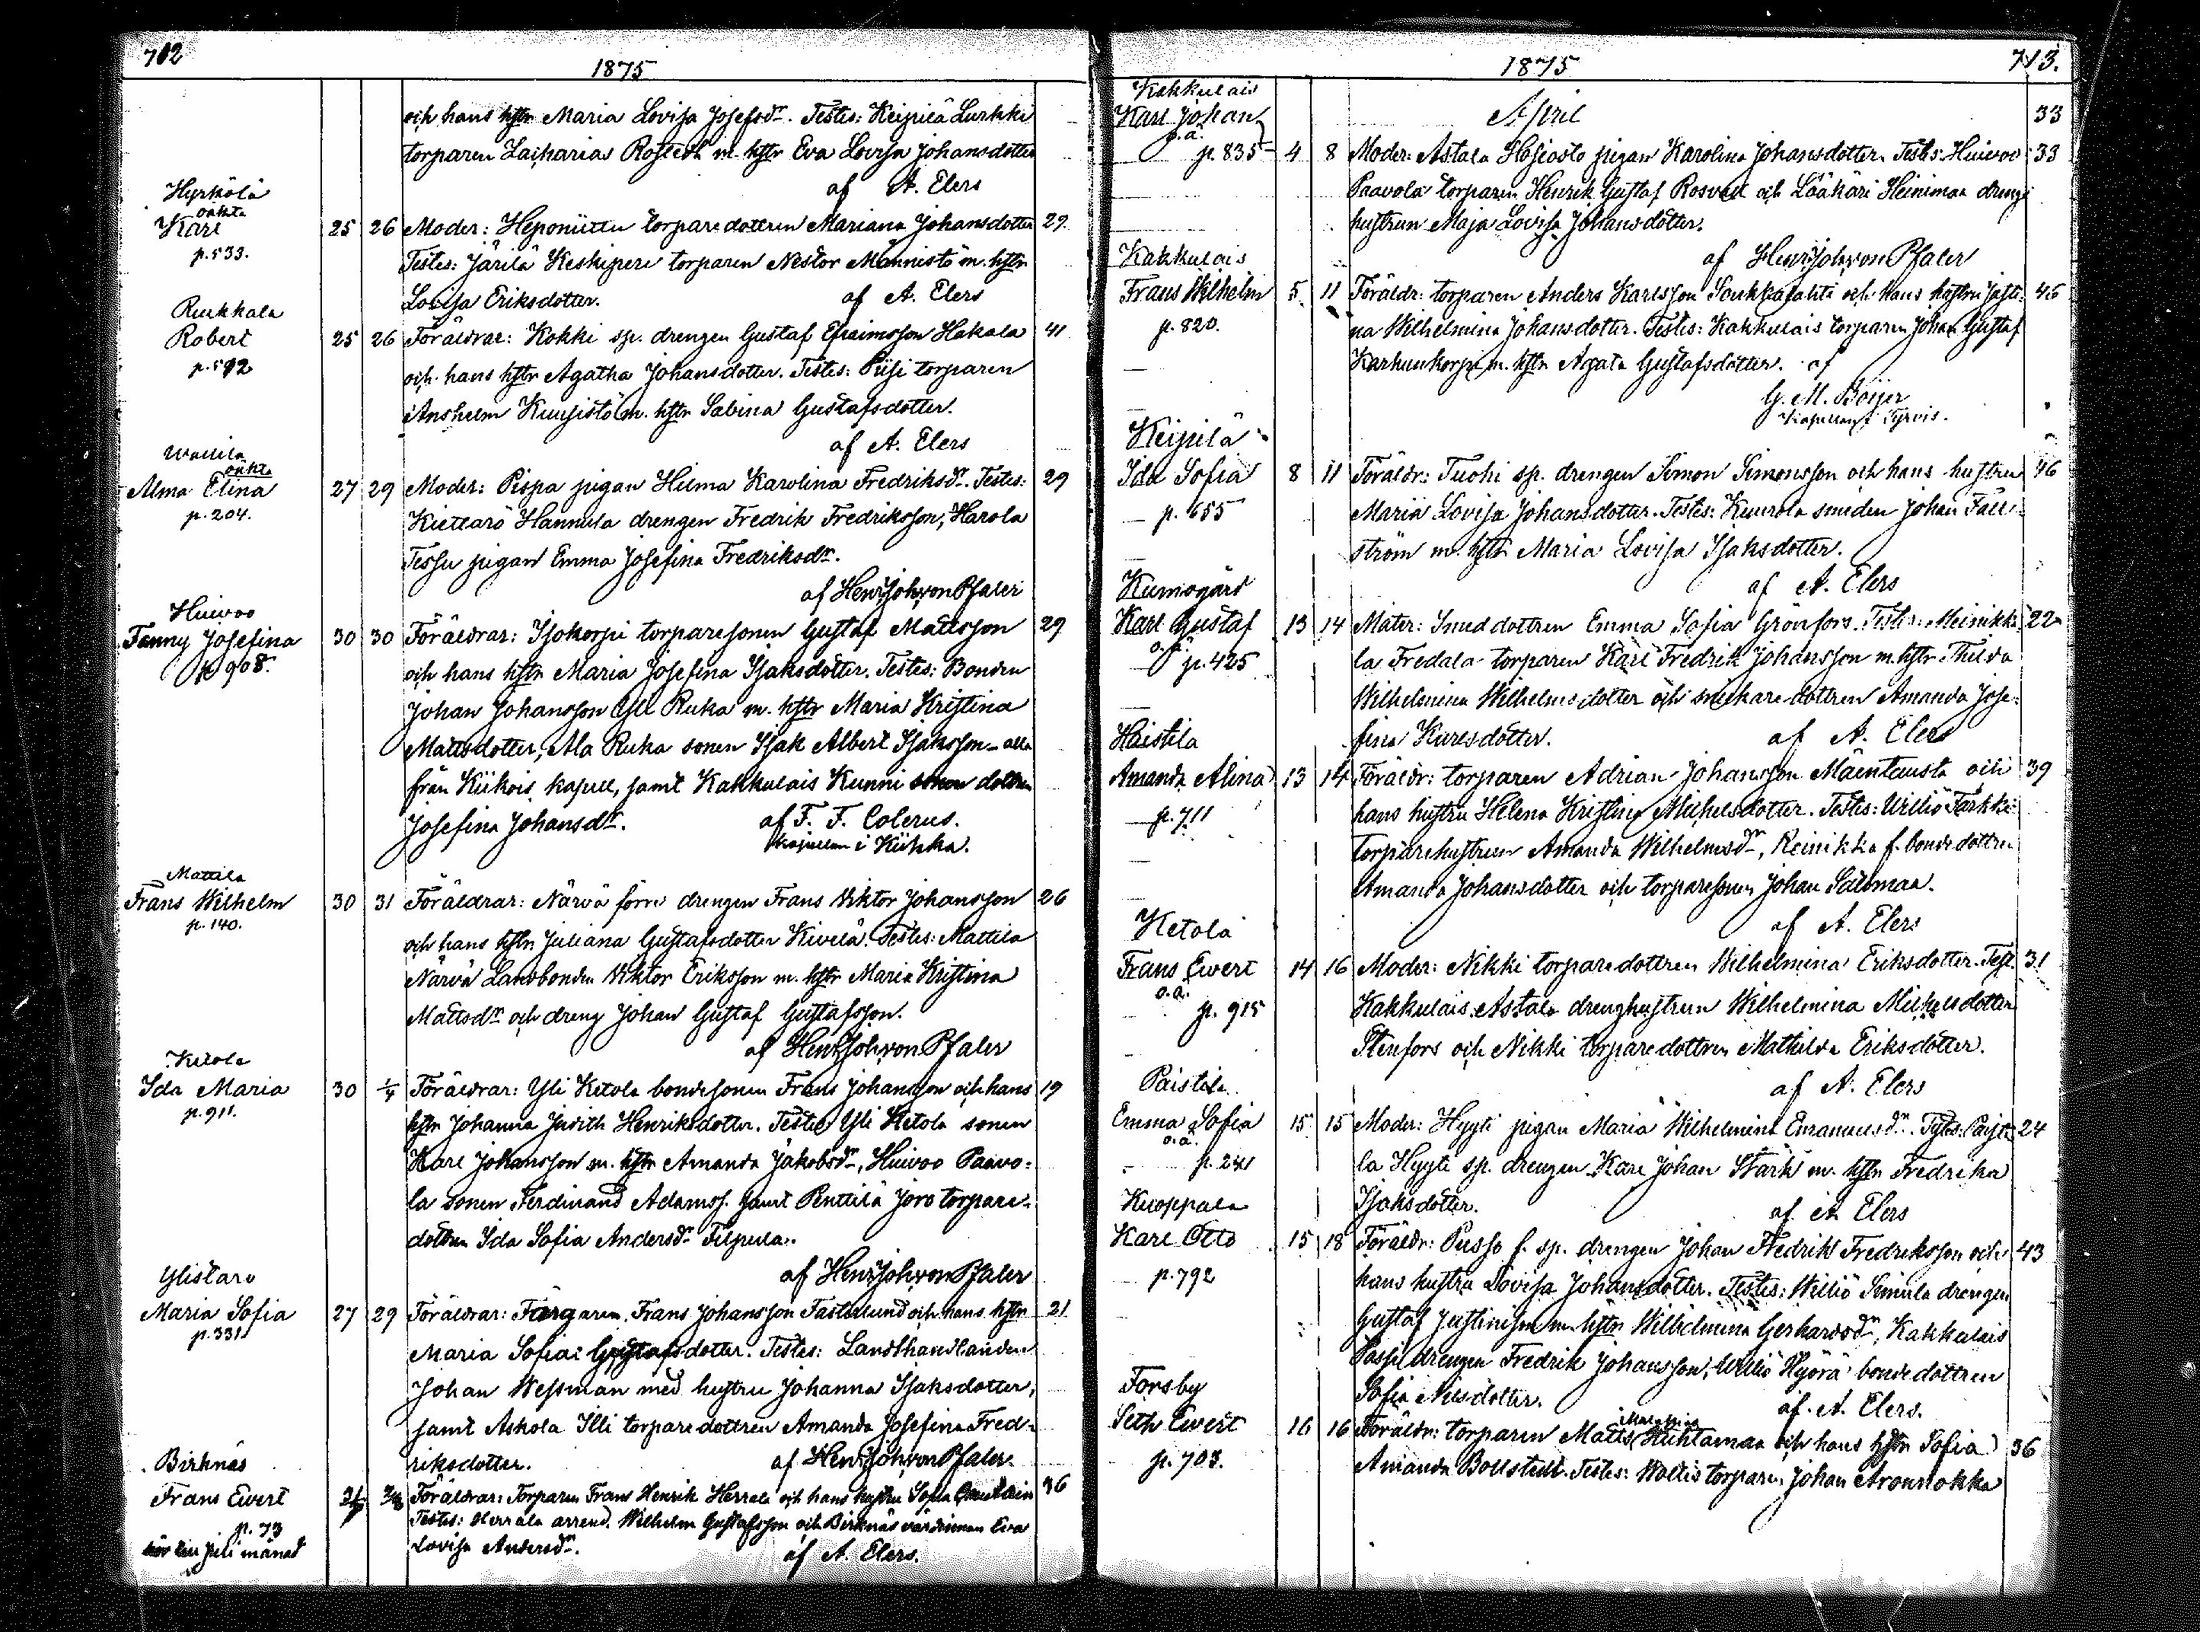 702
1875
och hans hstr Maria Lovisa Josefsdr. Testes: Keipilä Lurkki
torparen Zacharias m. hstr Eva Lovisa Johansdotter
af A. Elers
Hyrkölä
oäkta
Karl 25 26 Moder: torparedottren Mariana Johansdotter 29
p. 533. Testes: Järilä Keskiperi torparen Nestor Männistö m. hstr
Lovisa Eriksdotter. af A. Elers
Rukkala
Robert 25 26 Föräldrar: Kokki sp. drengen Gustaf Efraimsson Hakala 41
p. 592 och hans hstr Agatha Johansdotter. Testes: torparen
Anshelm m. hstr Sabina Gustafsdotter.
af A. Elers
oäkta
Alma Elina 27 29 Moder: Pispa pigan Hilma Karolina Fredriksdr. Testes: 29
p. 204. Hannula drengen Fredrik Fredriksson, Harola
pigan Emma Josefina Fredriksdr.
af Henr Joh von Pfaler
Huivoo
Fanny Josefina 30 30 Föräldrar: Isokorpi torparesonen Gustaf Mattsson 29
p. 908. och hans hstr Maria Josefina Isaksdotter. Testes: Bonden
Johan Johansson Yli Ruka m. hstr Maria Kristina
Mattsdotter, Ala Ruka sonen Isak Albert Isaksson alla
från Kiikois kapell, samt Kakkulais Kunni sonen dottren
Josefina Johansdr. af F. F. Colerus.
kapellan i Kiikka.
Mattila
Frans Wilhelm 30 31 Föräldrar: Närvä förre drengen Frans Viktor Johansson 26
p. 140. och hans hstr Juliana Gustafsdotter Kivelä. Testes: Mattila
Närvä Landbonden Viktor Eriksson m. hstr Maria Kristina
Mattsdr och dreng Johan Gustaf Gustafsson.
af Henr Joh von Pfaler
Ketola
Ida Maria 30 1/4 Föräldrar: Yli Ketola bondesonen Frans Johansson och hans 19
p. 911. hstr Johanna Judith Henriksdotter. Testes Yli Ketola sonen
Karl Johansson m. hstr Amanda Jakobsdr, Huivoo Paavo-
la sonen Ferdinand Adamss. samt Penttilä Joro torpare-
dottren Ida Sofia Andersdr Filpula.
af Henr Joh von Pfaler
Ylistaro
Maria Sofia 27 29 Föräldrar: Färgaren Frans Johansson och hans hstr 21
p. 331 Maria Sofia Gustafsdotter. Testes: Landthandlanden
Johan Wessman med hustru Johanna Isaksdotter,
samt Askola Illi torparedottren Amanda Josefina Fred-
riksdotter. af Henr Joh von Pfaler
Birknäs
Frans Evert Föräldrar: Torparen Frans Henrik Herrala och hans hustru Sofia 36
p. 73 Testes: Herrala arrend. Wilhelm Gustafsson och Birknäs värdinnan Eva
juli månad Lovisa Andersdr. af A. Elers.
713.
1875
Kakkulais
Karl Johan April 33
o.ä.
p. 835 4 8 Moder: Astala pigan Karolina Johansdotter. Testes: Huivoo 33
Paavola torparen Henrik Gustaf och Lääkäri Heinimaa dreng
hustrun Maja Lovisa Johansdotter.
af Henr Joh von Pfaler
Kakkulais
Frans Wilhelm 5 11 Föräldr: torparen Anders Karlsson och hans hustru Justi- 46
p. 820. na Wilhelmina Johansdotter. Testes: Kakkulais torparen Johan Gustaf
Karhunkorpi m. hstr Agata Gustafsdotter. af
G. M. Böijer
Kapellan i Tyrvis.
Keipilä
Ida Sofia 8 11 Föräldr: Tuohi sp. drengen Simon Simonsson och hans hustru 46
p. 655 Maria Lovisa Johansdotter. Testes: smeden Johan Fäll-
ström m. hstr Maria Lovisa Isaksdotter.
af A. Elers
Kumogård
Karl Gustaf 13 14 Mater: Smeddottren Emma Sofia Grönfors. Testes: Meinikkä- 22
o.ä.
p. 425 la Fredala torparen Karl Fredrik Johansson m. hstr Thilda
Wilhelmina Wilhelmsdotter och snickare dottren Amanda Jose-
fina Karlsdotter. af A. Elers
Haistila
Amanda Alina 13 14 Föräldr: torparen Adrian Johansson Mäentausta och 39
p. 711 hans hustru Helena Kristina Michelsdotter. Testes: Williö Tärkki
torparehustrun Amanda Wilhelmsdr, Reinikka f. bonde dottren
Amanda Johansdotter och torparesonen Johan Salomaa.
af A. Elers
Ketola
Frans Evert 14 16 Moder: Nikki torparedottren Wilhelmina Eriksdotter. Test. 31
o.ä.
p. 915 Kakkulais Astala drenghustrun Wilhelmina Michelsdotter
Stenfors och Nikki torparedottren Mathilda Eriksdotter.
af A. Elers
Paistila
Emma Sofia 15 15 Moder: Hyyti pigan Maria Wilhelmina Emanuelsdr. Testes: Paisti- 24
o.ä.
p. 241 la Hyyti sp. drengen Karl Johan Stark m. hstr Fredrika
Isaksdotter. af A. Elers
Kuoppala
Karl Otto 15 18 Föräldr: f. sp. drengen Johan Fredrik Fredriksson och 43
p. 792 hans hustru Lovisa Johansdotter. Testes: Williö Simula drengen
Gustaf m. hstr Wilhelmina Gerhardsdr, Kakkulais
drengen Fredrik Johansson, Williö Hyörä bonde dottren
Sofia Nilsdotter. af A. Elers.
Forsby
Seth Evert 16 16 Föräldr: torparen Matts Huhtamaa och hans hstr Sofia 36
p. 703. Amanda Bollstedt. Testes: torparen Johan